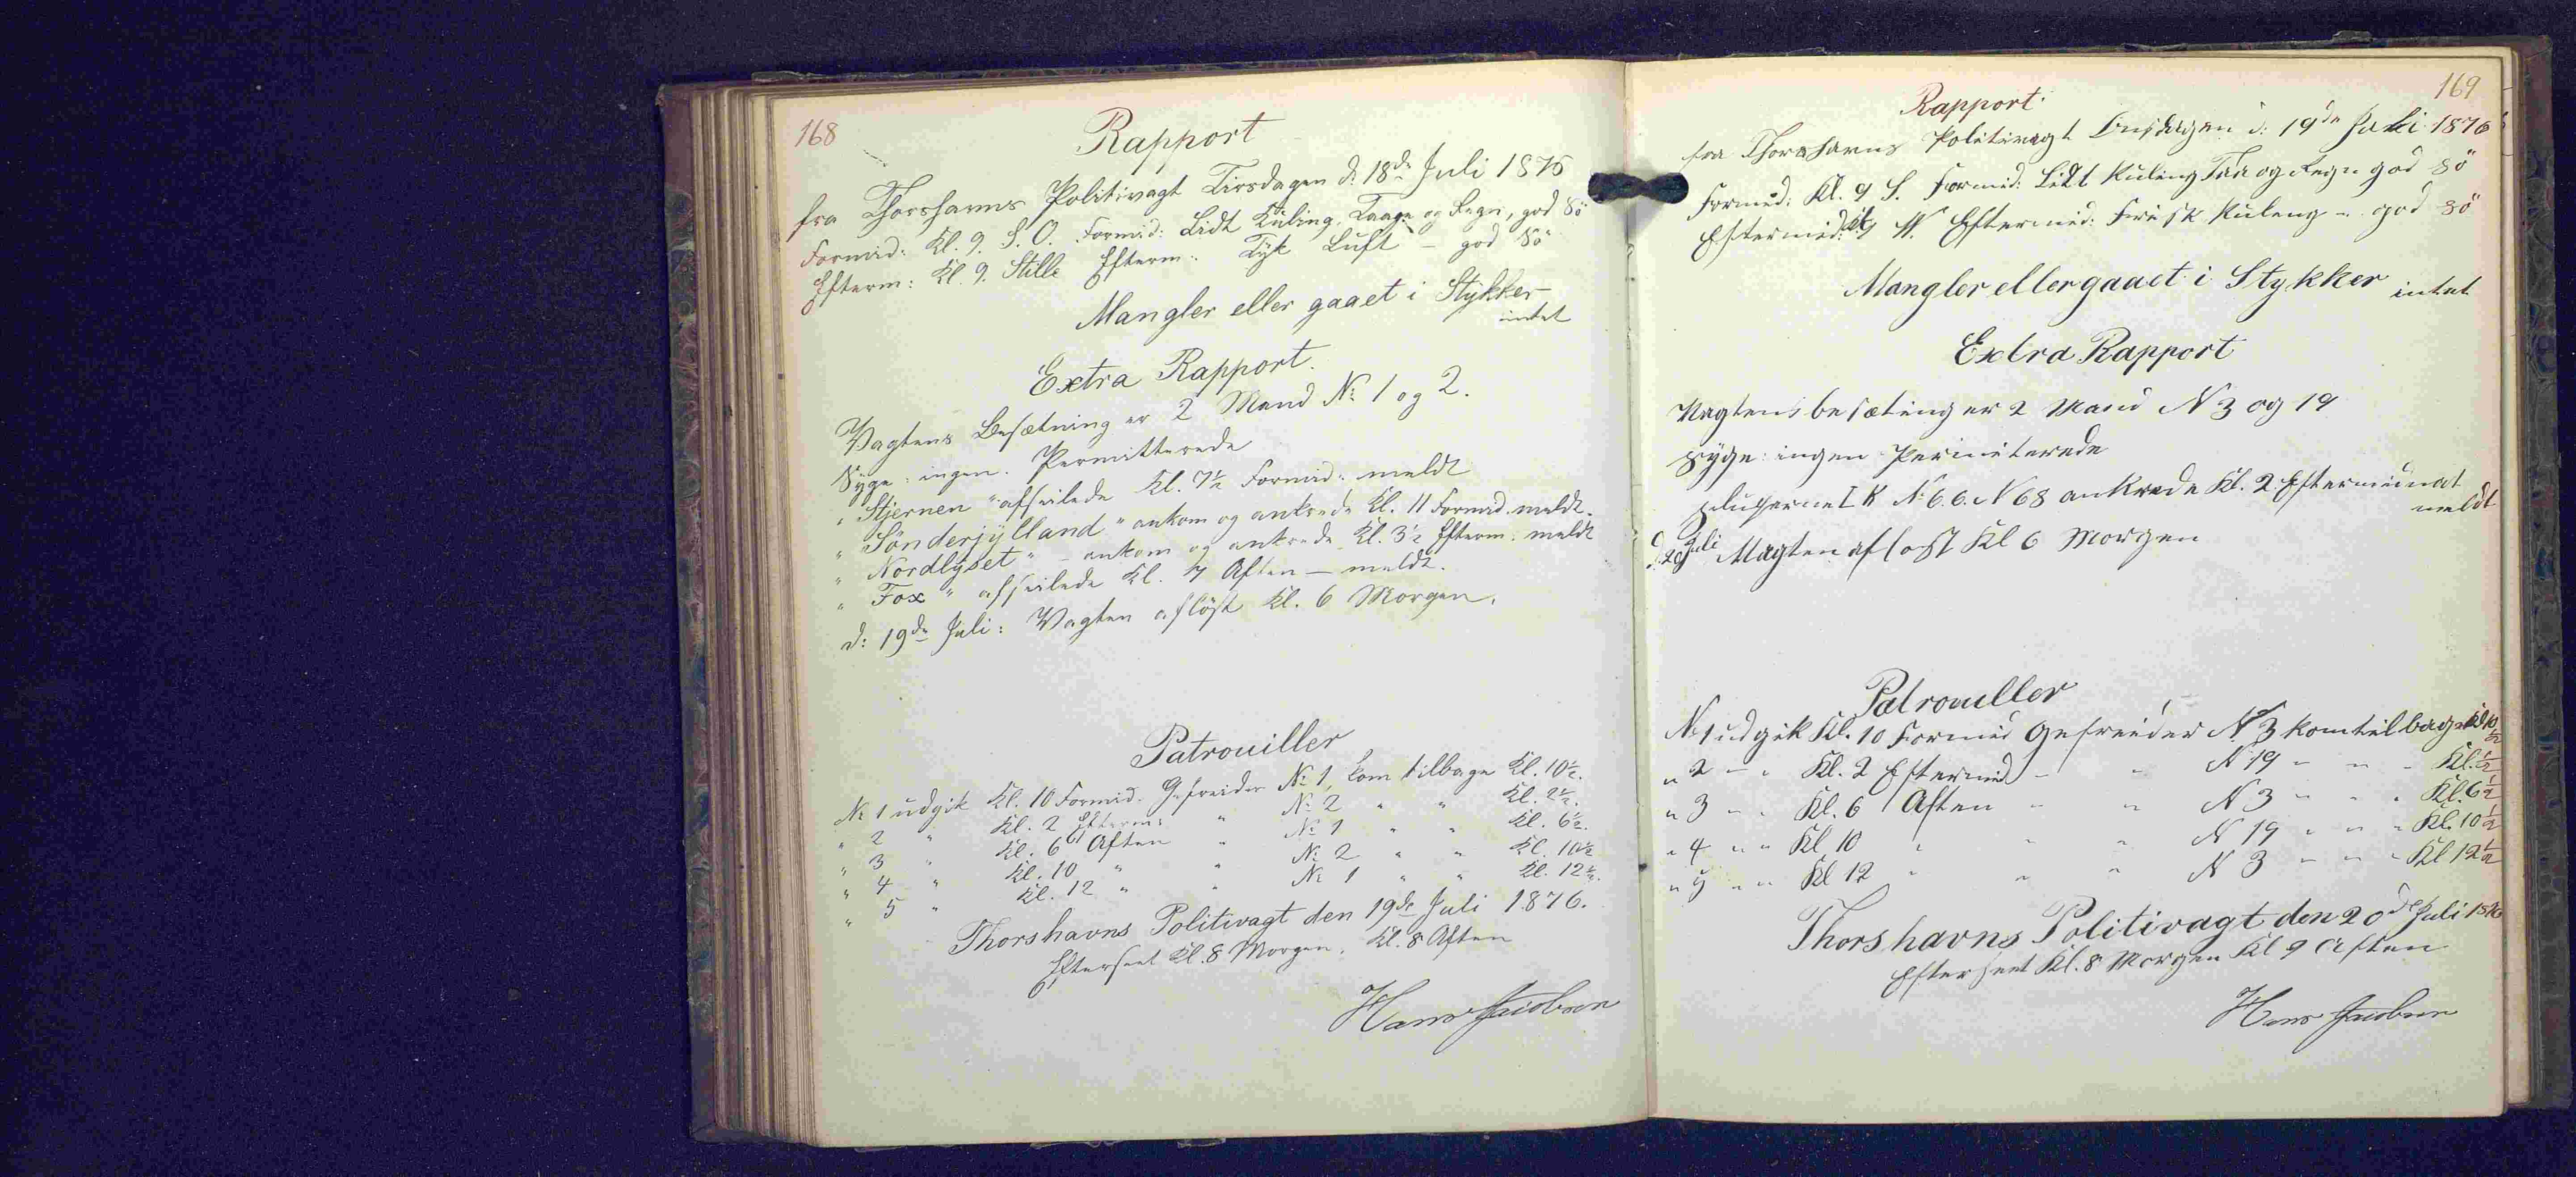 168
Rapport
fra Thorshavns Politivagt Tirsdagen d: 18de Juli 1876
Formid: Kl. 9. S. O. Formid: Lidt Kuling, Taage og Regn, god Sö
Efterm: Kl. 9. Stille Efterm: Tyk Luft – god Sö
Mangler eller gaaet i Stykker –
intet
Extra Rapport.
Vagtens Besætning er 2 Mand No 1 og 2.
Syge: ingen. Permitterede
"Stjernen" afseilede Kl. 7½ Formid: meldt
"Sönderjylland" ankom og ankrede Kl. 11 Formid. meldt.
"Nordlyset" – ankom og ankrede Kl. 3½ Efterm: meldt
"Fox" afseilede Kl. 7 Aften – meldt.
d: 19de Juli: Vagten aflöst Kl. 6 Morgen.
Patrouiller
No 1 udgik Kl. 10 Formid. Gefreider No 1, kom tilbage Kl. 10½.
" 2 " Kl. 2 Efterm: " No 2 " " Kl. 2½.
" 3 " Kl. 6 Aften " No 1 " " Kl. 6½.
" 4 " Kl. 10 " " No 2 " " Kl. 10½
" 5 " Kl. 12 " " No 1 " " Kl. 12½.
Thorshavns Politivagt den 19de Juli 1876.
Efterseet Kl. 8 Morgen. Kl. 8 Aften
Hans Jacobsen
169
Rapport
fra Thorshavns Politivagt Onsdagen d: 19de Juli 1876
Formid: Kl. 9 S. Formid: Lidt Kuling Taa og Regn god Sö
Eftermid: Kl 9 N. Eftermid: Frisk Kuleng – god Sö
Mangler eller gaaet i Stykker intet
Extra Rapport
Vagtens besæting er 2 Mand N 3 og 19
Syge: ingen Permiterede
Sluperne T K No 6. 6. N 68 ankrede Kl. 2 Eftermidnat
meldt
d. 20 Juli Vagten aflost Kl 6 Morgen
Patrouller
No 1 udgik Kl. 10 Formid Gefreider No 3 kom tilbage Kl 10½
" 2 – " Kl. 2 Eftermid – " N 19 – " – Kl. ½
" 3 – " Kl. 6 Aften " " N 3 – " " Kl. 6½
" 4 " " Kl 10 " " " N 19 " " " Kl. 10½
" 5 " " Kl 12 " " " N 3 – " " Kl 12½
Thorshavns Politivagt den 20de Juli 1876
Efterseet Kl. 8 Morgen Kl 9 Aften
Hans Jacobsen